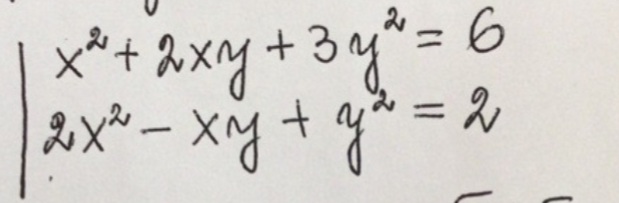 x² + 2xy + 3y² = 6
2x² - xy + y² = 2